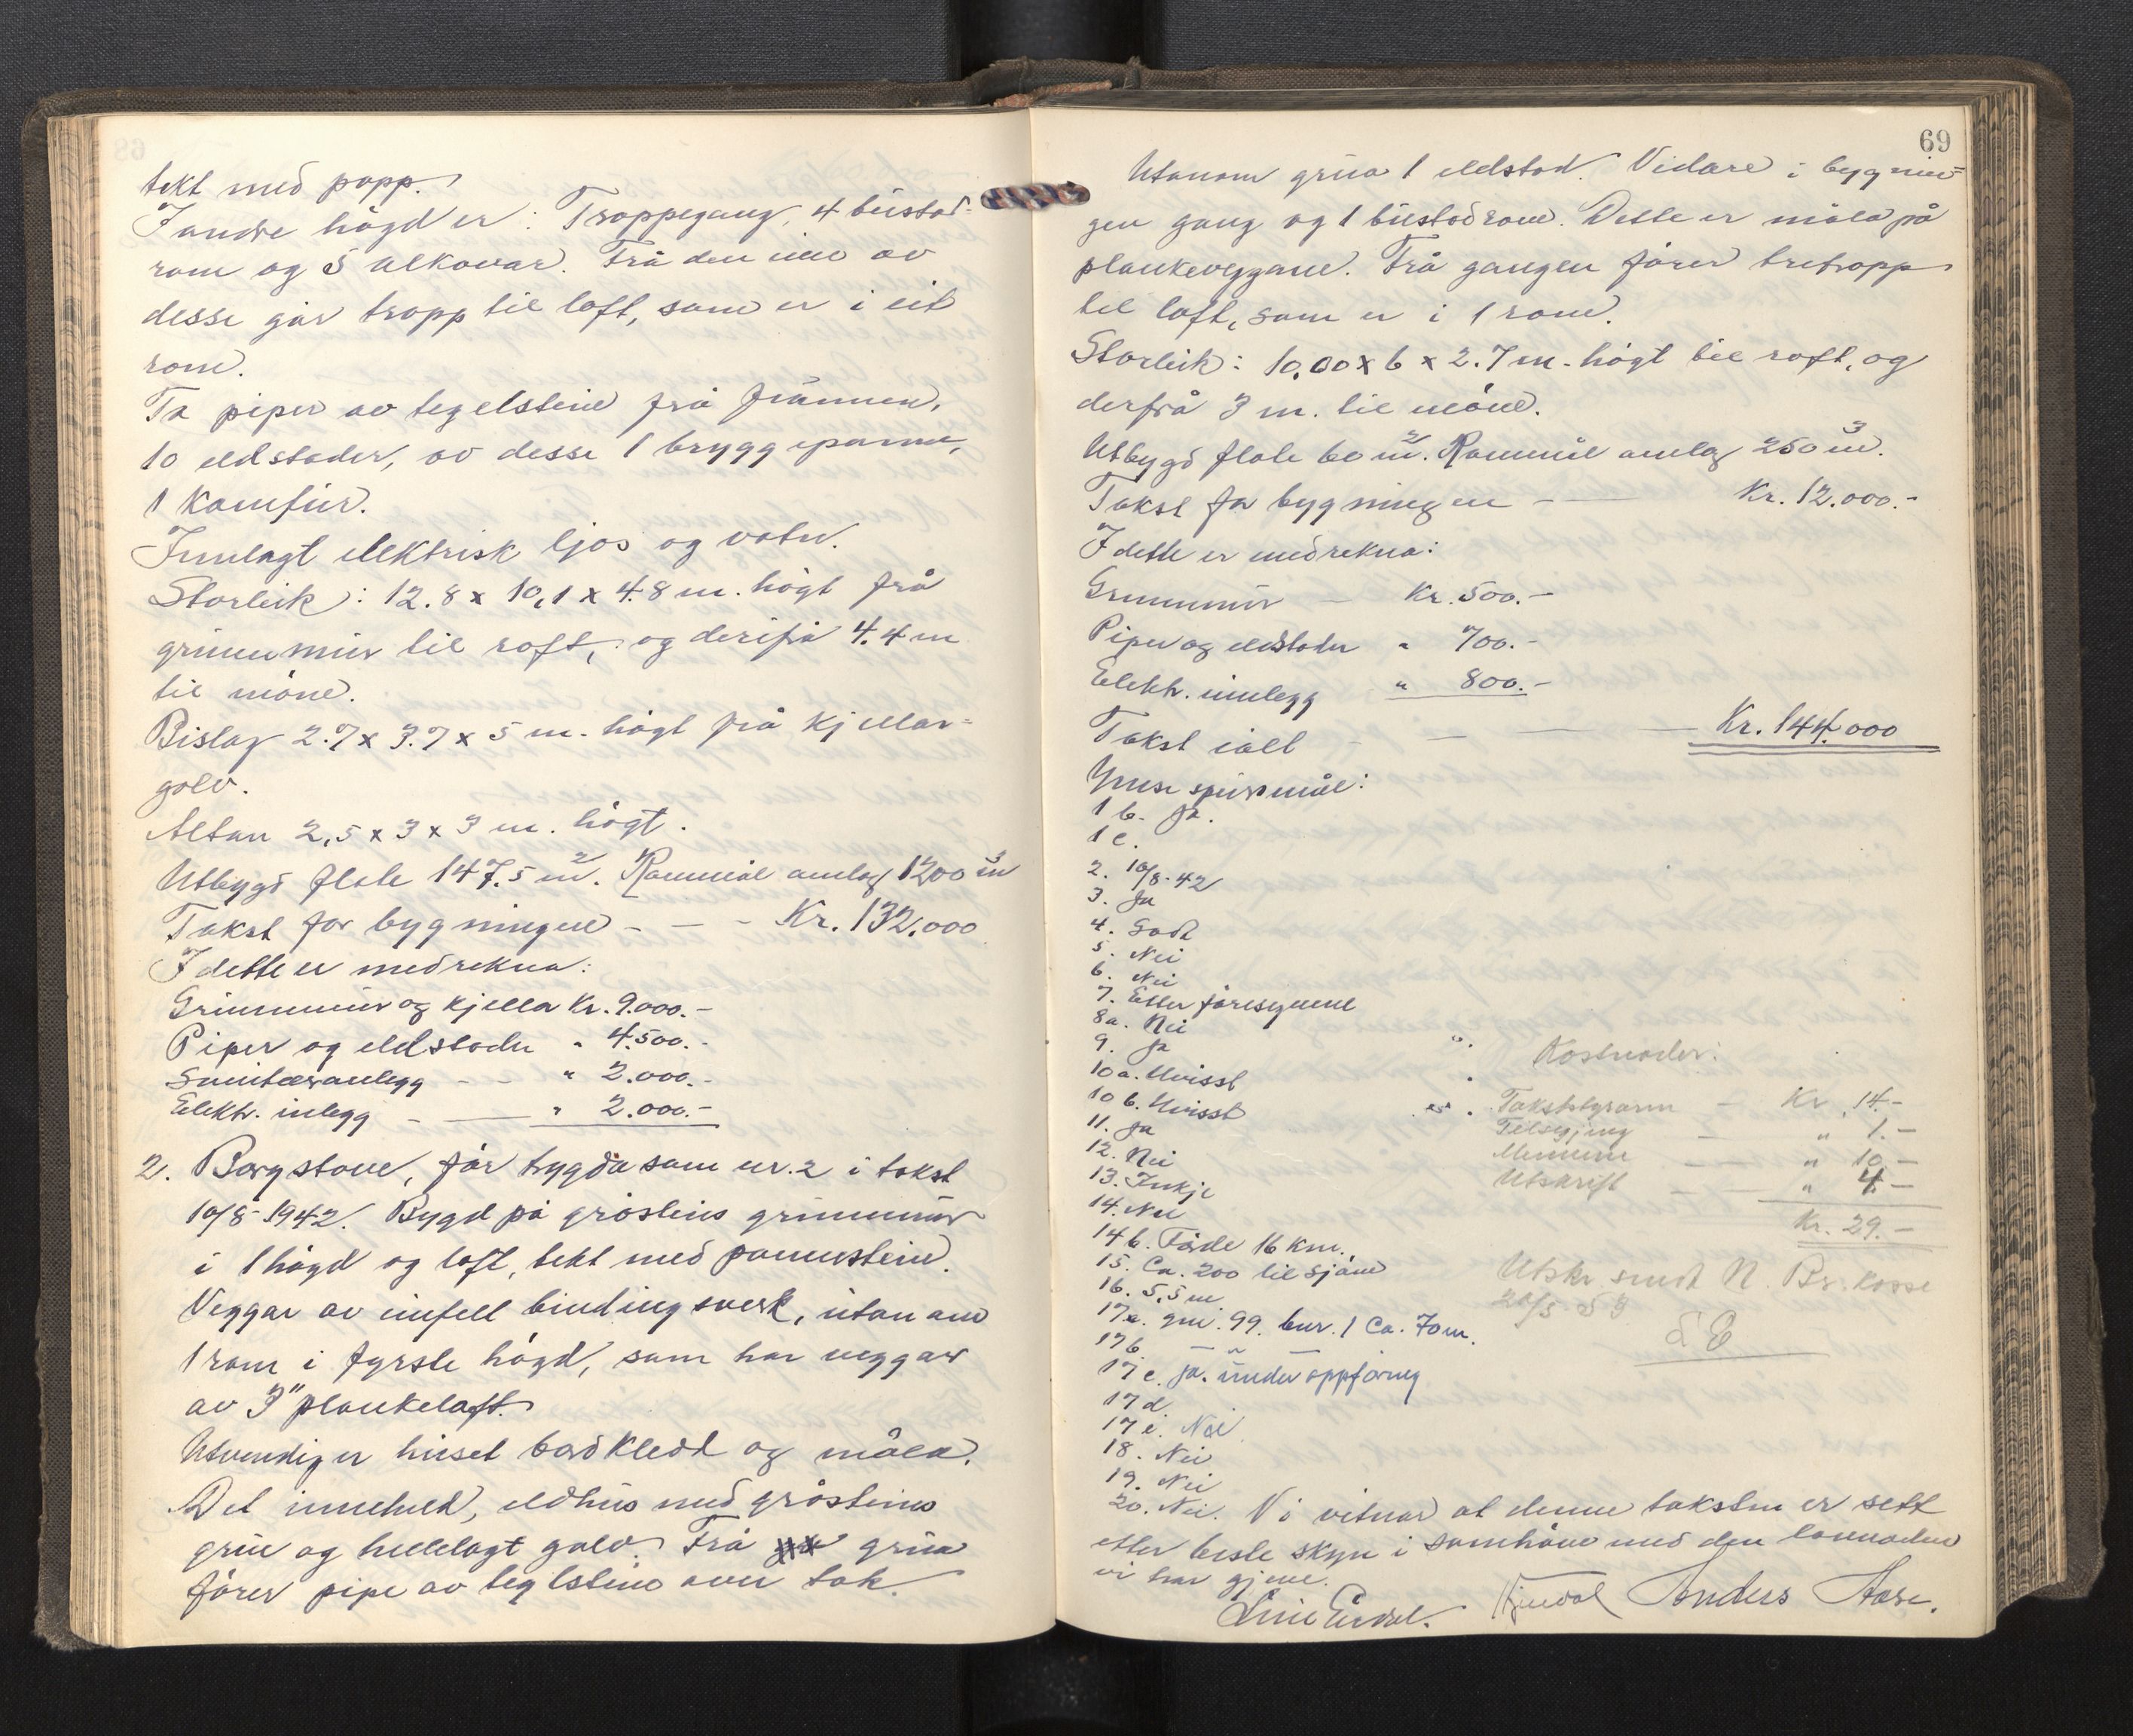 tekt med papp.
I andre høgd er: Troppegang, 4 bustad-
rom og 5 alkovar. Frå den eine av
desse går tropp til loft, som er i eit
rom.
To piper av tegelstein frå grunnen,
10 eldstader, av desse 1 bryggepanne,
1 Komfur.
Innlagt elektrisk ljos og vatn.
Storleik: 12.8 x 10,1 x 4.8 m. høgt frå
grunnmur til raft, og derifrå 4.4 m
til møne.
Bislag 2.7 x 3.7 x 5 m. høgt frå kjellar=
golv.
Altan 2,5 x 3 x 3 m. høgt.
Utbygd flate 147.5 m². Rommål omlag 1200 m³
Takst for bygningen - - - Kr. 132.000
I dette er medrekna:
Grunnmur og kjellar Kr. 9.000.-
Piper og eldstader " 4.500.-
Sanitæranlegg - - " 2.000.-
Elektr. inlegg - — " 2.000.-
2. Borgstove, før bygda som nr. 2 i takst
10/8-1942. Bygd på gråsteins grunnmur
i 1 høgd og loft, tekt med pannestein.
Veggar av einfelt bindingsverk, utan om
1 rom i fyrste høgd, som har veggar
av 3" plankelaft.
Utvendig er huset bordkledt og måla.
Det inneheld, eldhus med gråsteins
grue og hellelagt golv. Frå grua
fører pipe av teglstein over tak.
69
Utanom grua 1 eldstad. Vidare i bygnin=
gen gang og 1 bustadrom. Dette er måla på
plankeveggane. Frå gangen fører tretropp
til loft, som er i 1 rom.
Storleik: 10,00 x 6 x 2.7 m. høgt til raft, og
derfrå 3 m. til møne.
Utbygd flate 60 m². Rommål omlag 250 m³.
Takst for bygningen - — Kr. 12.000.-
I dette er medrekna:
Grunnmur — Kr. 500.-
Piper og eldstader " 700.-
Elektr. innlegg " 800.-
Takst ialt - — — Kr. 144.000
Ymse spursmål:
1 b. Ja.
1 c.
2. 10/8-42
3. Ja
4. Godt
5. Nei
6. Nei
7. Etter føresegnene
8a. Nei
9. Ja
10a. Uvisst
10 b. Uvisst
11. Ja
12. Nei
13. Inkje
14. Nei
14 b. Førde 16 km.
15. Ca. 200 til sjøen
16. 5,5 m.
17a. gnr. 99. bnr. 1 Ca. 70 m.
17b. — " —
17 c. Ja. under oppføring
17 d
17 e. Nei
18. Nei
19. Nei
20. Nei. Vi vitnar at denne taksten er sett
etter beste skyn i samhøve med den lovnaden
vi har gjeve.
Anders Aase.
Kostnader:
Takstbgrann — Kr. 14.-
Tilsegjing — " 1.-
Mennene — " 10.-
Utskrift — " 4.-
Kr. 29.-
Utskr. sendt N. Br. kasse
20/5-53